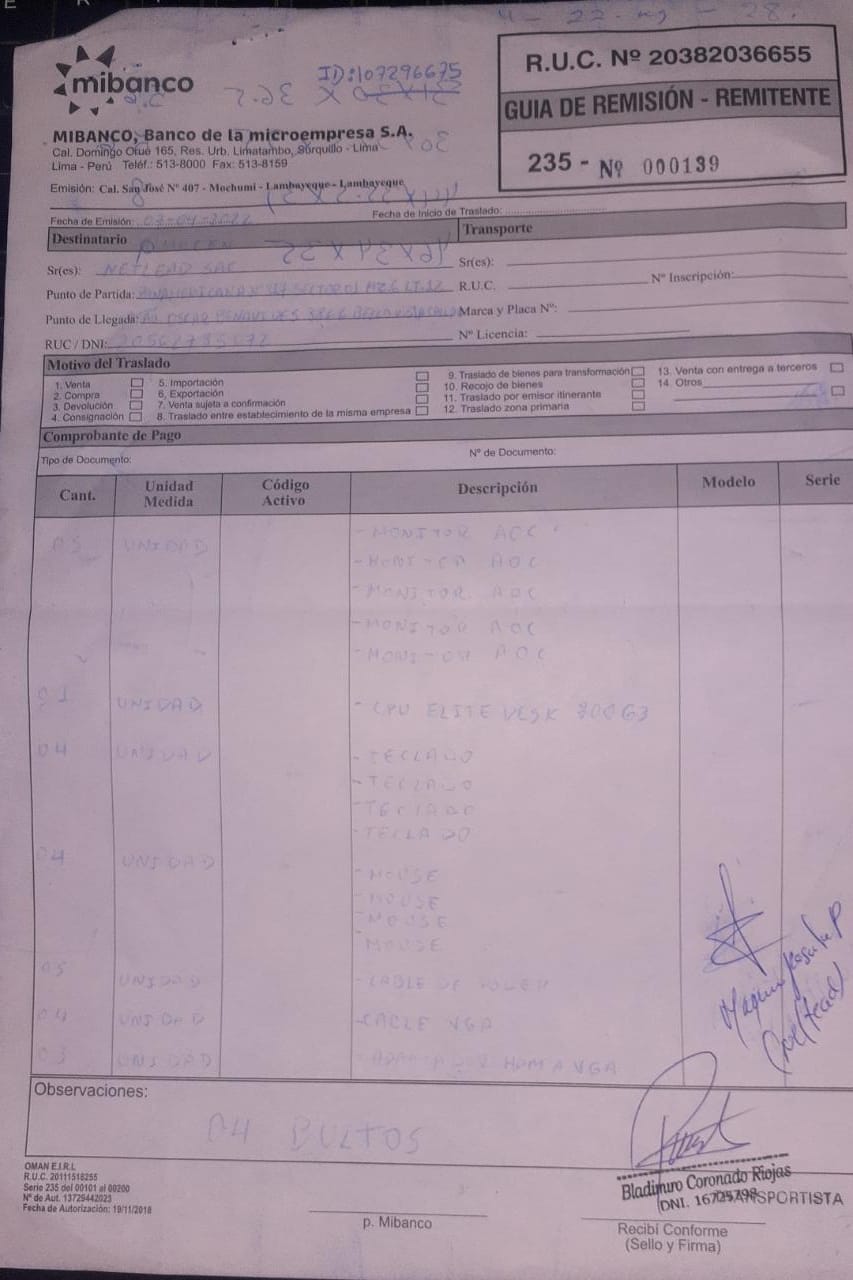 mibanco
ID:107296675
R.U.C. Nº 20382036655
GUIA DE REMISIÓN - REMITENTE
235 - Nº 000139
MIBANCO, Banco de la microempresa S.A.
Cal. Domingo Orué 165, Res. Urb. Limatambo, Surquillo - Lima
Lima - Perú Teléf.: 513-8000 Fax: 513-8159
Emisión: Cal. San José Nº 407 - Mochumi - Lambayeque - Lambayeque
Fecha de Emisión: 07-04-2022 Fecha de Inicio de Traslado:
Destinatario Transporte
Sr(es): NETLEAD SAC Sr(es):
Punto de Partida: R.U.C. Nº Inscripción:
Punto de Llegada: Marca y Placa Nº:
RUC / DNI: Nº Licencia:
Motivo del Traslado
1. Venta 5. Importación 9. Traslado de bienes para transformación 13. Venta con entrega a terceros
2. Compra 6. Exportación 10. Recojo de bienes 14. Otros
3. Devolución 7. Venta sujeta a confirmación 11. Traslado por emisor itinerante
4. Consignación 8. Traslado entre establecimiento de la misma empresa 12. Traslado zona primaria
Comprobante de Pago
Tipo de Documento: Nº de Documento:
Cant. Unidad Medida Código Activo Descripción Modelo Serie
05 UNIDAD - MONITOR AOC
- MONITOR AOC
- MONITOR AOC
- MONITOR AOC
- MONITOR AOC
01 UNIDAD - CPU ELITE DESK 800G3
04 UNIDAD - TECLADO
- TECLADO
- TECLADO
- TECLADO
04 UNIDAD - MOUSE
- MOUSE
- MOUSE
MOUSE
05 UNIDAD - CABLE DE POWER
04 UNIDAD - CABLE VGA
03 UNIDAD - ADAPTADOR HDMI A VGA
Observaciones:
04 BULTOS
OMAN E.I.R.L
R.U.C. 20111518255
Serie 235 del 00101 al 00200
Nº de Aut. 13729442023
Fecha de Autorización: 19/11/2018
p. Mibanco
Bladimiro Coronado Riojas
DNI.
TRANSPORTISTA
Recibí Conforme
(Sello y Firma)